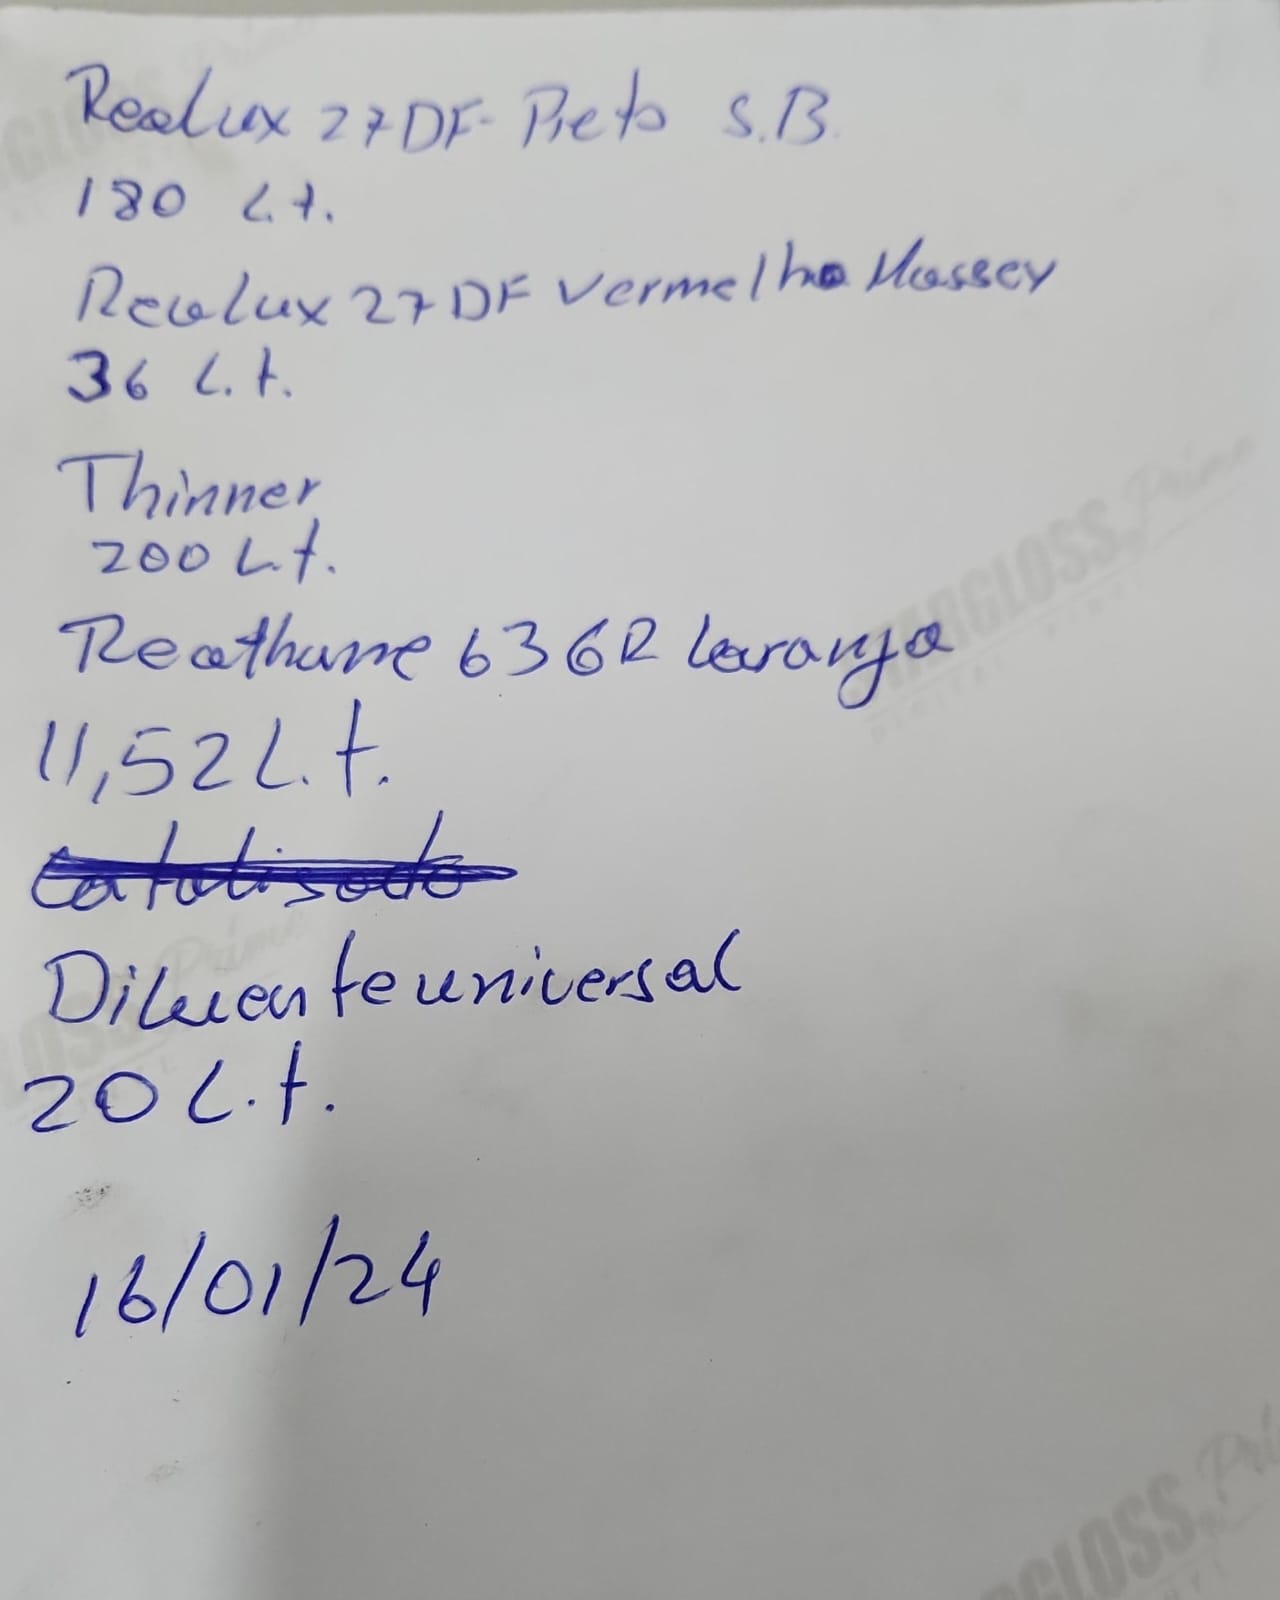 Realux 27DF- Preto S.B.
180 L.t.
Realux 27DF Vermelho Massey
36 L.t.
Thinner
200 L.t.
Reathane 636R Laranja
11,52 L.t.
Diluente universal
20 L.t.
16/01/24